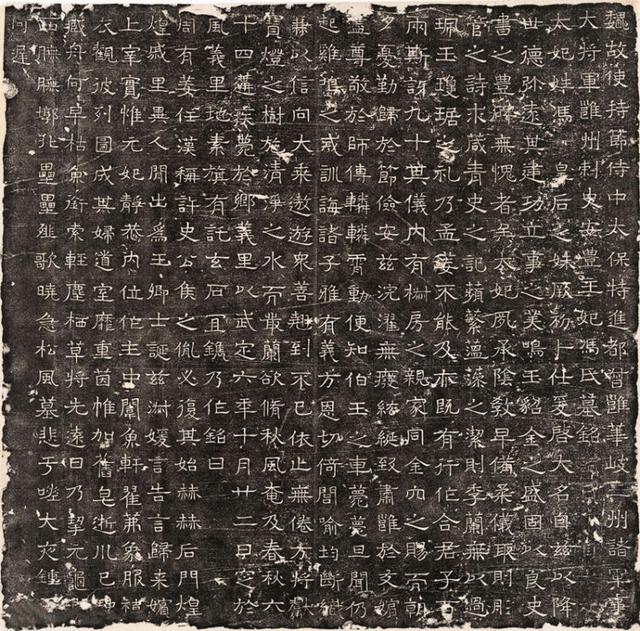 魏故使持節侍中太保特進都督雝華岐三州諸軍事
大將軍雝州刺史安豊王妃馮氏墓銘
太妃姓馮皇后之妹厥初卜仕爰啓大名自茲以降
世德弥遠其建功立事之美鳴玉貂金之盛國以良史
書之豊碑無愧者矣太妃夙承陰教早備柔儀取則彤
管之詩求箴青史之記蘋蘩薀藻之潔則季蘭無以過
珮玉瓊琚之礼乃孟姜不能及亦既有行作合君子百
兩斯訝九十其儀内有椒房之親家同金內之賜而朝
夕憂勤歸於節儉安茲浣濯無癈紘綖致肅雝於支嬪
盡尊敬於師傅轔轔霄動便知伯玉之車薨薨旦聞仍
起雞鳴之戒訓誨諸子雅有義方恩切倚閭喻均斷織
兼以信向大乘遨遊衆善翹到不已依止無倦方將獻
寶燈之樹施清淨之水而叢蘭欲脩秋風奄及春秋六
十四遘疾薨於鄉義里以武定六年十月廿二日窆於
風義里地素旐有託玄石宜鐫乃作銘曰
周有姜任漢稱許史公侯之胤必復其始赫赫后門煌
煌戚里異人間出爲王卿士誕茲淑媛言告言歸来嬪
上宰實惟元妃靜恭内位作主中闈魚軒翟茀象服褘
衣觀彼列圖成其婦道室靡重茵帷加舊皂逝川已
藏舟何早枯魚銜索輕塵栖草將先遠日乃挈元龜
膴膴郊兆壘壘薤歌曉急松風暮悲于嗟大夜鍾
何遲